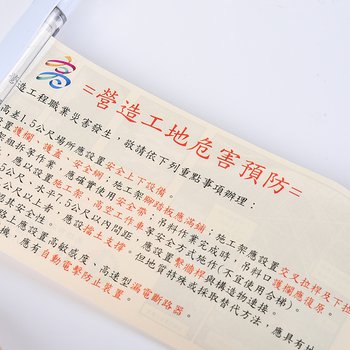 =營造工地危害預防=
造工程職業災害發生，敬請依下列重點事項辦理：
高差1.5公尺場所應設置安全上下設備。
置護欄、護蓋、安全網；施工架腳踏板應滿鋪；施工架應設置交叉拉桿及下拉
組拆等作業，應確實使用安全帶；吊料作業完成時；吊料口護欄應復原。
公尺，應設置施工架、高空工作車等安全方式施作(不宜使用合梯)。
5公尺、水平5.5公尺以內間距，應設置繫牆桿與構造物連接。
其安全性。
1.5公尺以上者，應設擋土支撐。但地質特殊或採取替代方法，應具有
應設置高敏感度、高速型漏電斷路器。
機，應有自動電擊防止裝置。